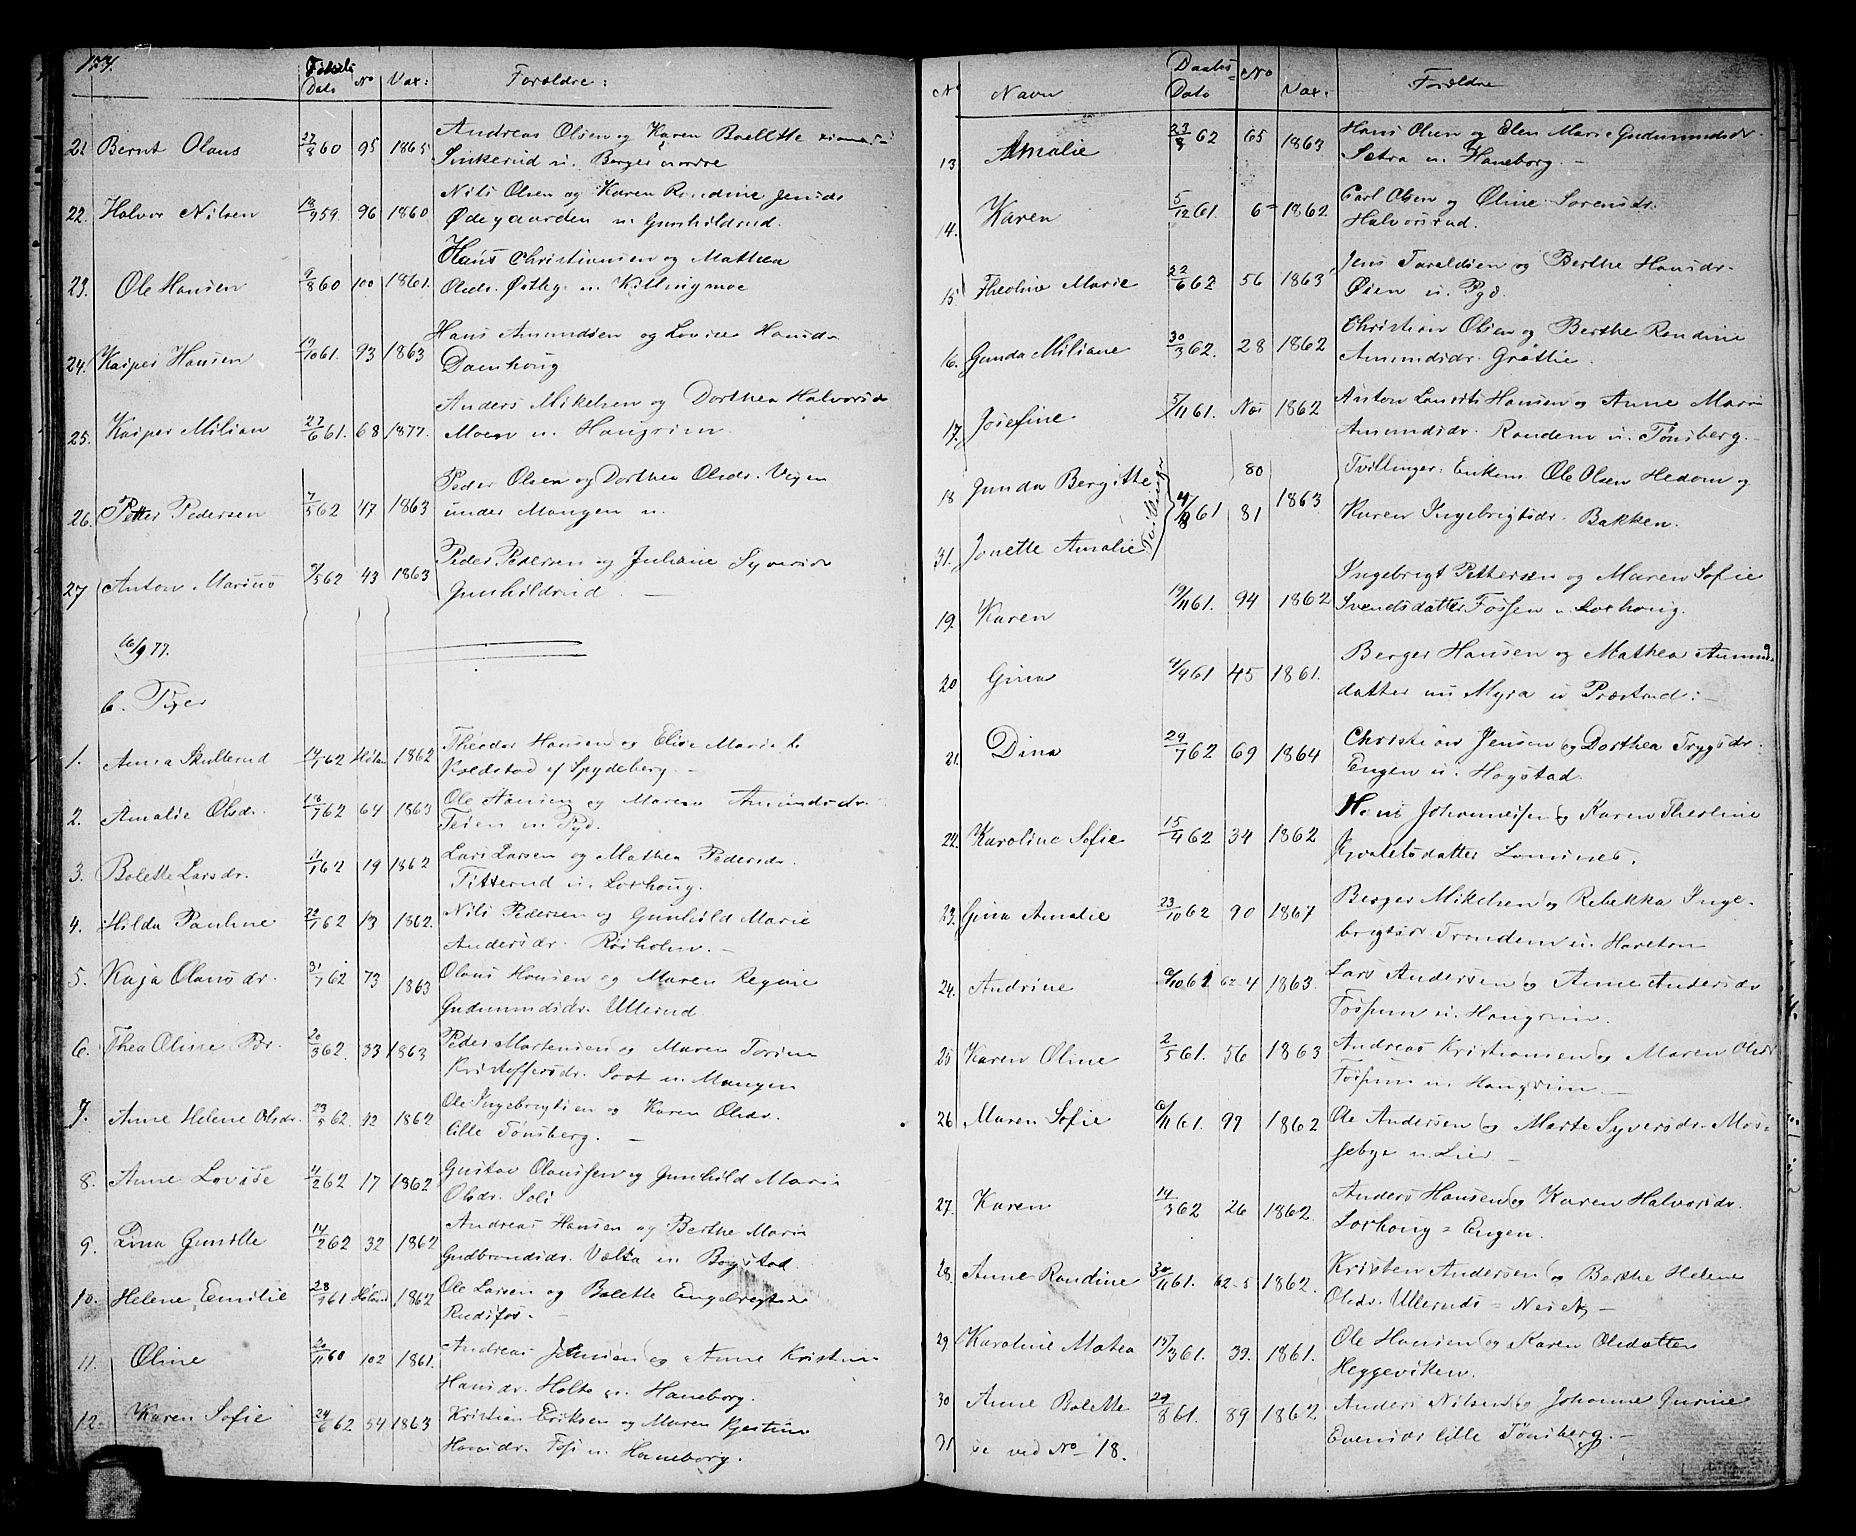 Dato No Vax: Forældre:
21 Bernt Olaus 27/8 60 95 1865 Andreas Olsen og Karen Boellette
Sinkerud u. Berger nordre
22. Halvor Nilsen 18/9 59. 96 1860 Nils Olsen og Karen Rondine Jensdr
Ødegaarden u. Gunhildrud.
23. Ole Hansen 9/8 60 100 1861. Hans Christiansen og Mathea
Olsdr. Østby u. Killingmoe
24. Kasper Hansen 19/10 61. 93 1863 Hans Amundsen og Lovise Hansdr
Damhoug
25. Kasper Milian 27/6 61. 68 1877. Anders Mikelsen og Dorthea Halvorsdr
Moen u. Hougrim.
26. Petter Pedersen 7/5 62 47 1863 Peder Olsen og Dorthea Olsdr. Vegen
under Mangen u.
27 Anton Marinus 3/5 62 43 1863 Peder Pedersen og Juliane Syversdr
Gunhildrud. —
16/9 77.
b. Piger
1. Anna Skullerud 14/7 62 Høland 1862 Theodor Hansen og Elise Marie
Koldstad af Spydeberg. —
2. Amalie Olsdr. 18/7 62 64 1863 Ole Hansen og Maren Amundsdr.
Teien u. Ryd.
3. Bolette Larsdr. 19 1862 Lars Larsen og Mathea Pedersdr.
Titterud u. Lorhoug.
4. Hilda Pauline 13 1862. Nils Pedersen og Gunhild Marie
Andersdr. Rosholm. —
5. Kaja Olausdr. 31/7 62 73 1863 Olaus Hansen og Maren Regine
Gudmundsdr. Ullerud
6. Thea Oline Pdr. 20/3 62. 33 1863 Peder Martensen og Maren Torine
Kristoffersdr. Soot u. Mangen
7. Anne Helene Olsdr. 23/5 62. 42 1862 Ole Ingebregtsen og Karen Olsdr.
lille Tønsberg. —
8. Anne Lovise 4/2 62 17 1862 Gustav Olaussen og Gunhild Marie
Olsdr. Soli
9. Lina Gunille 14/2 62 32 1862 Andreas Hansen og Berthe Marie
Gudbrandsdr. Vælta u. Bogstad
10. Helene Emilie 61 Høland 1862 Ole Larsen og Bolette Engebregtsdr
Rudsfos. —
11. Oline 20/11 60 102 1861. Andreas Jensen og Anne Kristine
Hansdr. Holte u. Haneborg.
12. Karen Sofie 24/6 62 54 1863 Kristian Eriksen og Maren Kjestine
Hansdr. Foss u. Haneborg.
No Navn Daabs- Dato No Vax. Forældre
13 Amalie 23/8 62 65 1863 Hans Olsen og Elen Marie Gudmundsdr.
Setra u. Haneborg. —
14. Karen 5/12 61. 6 1862 Carl Olsen og Oline Sorensdr.
Halvorsrud.
15 Theoline Marie 22/6 62 56 1863 Jens Taraldsen og Berthe Hansdr.
Øien u. Ryd.
16. Gunda Miliane 30/3 62. 28 1862 Christian Olsen og Berthe Rondine
Amundsdr. Grøttie.
17. Josefine 5/11 61. Næs 1862 Anton Laurits Hansen og Anne Marie
Amundsdr. Randem u. Tønsberg. —
18 Gunda Bergitte Tvillinger 4/8 61 80 1863 Tvillinger: Enkem. Ole Olsen Hedom og
31. Jonette Amalie 81 Karen Ingebrigtsdr. Bakken.
19. Karen 19/11 61. 94 1862 Ingebrigt Pettersen og Maren Sofie
Svendsdatter Fossen u. Lorhoug.
20 Gina 4/4 61 45 1861. Berger Hansen og Mathea Amunds
datter nu Myra u. Præstrud: —
21. Dina 29/7 62 69 1864 Christian Jensen og Dorthea Trygsdr.
Engen u. Hogstad.
22. Karoline Sofie 15/4 62 34 1862 Hans Johannessen og Karen Theoline
datter Lomsnes.
23. Gina Amalie 23/10 62 90 1867 Berger Mikelsen og Rebekka Inge-
brigtsdr Trondem u. Hareton
24. Andrine 6/10 61 62 4 1863. Lars Andersen og Anne Andersdr
Fossum u. Hougrim.
25 Karen Oline 2/5 61. 56 1863 Andreas Kristiansen og Maren Olsdr
Fossum u. Hougrim —
26 Maren Sofie 6/11 61. 99 1862 Ole Andersen og Marte Syversdr. Mos-
sebye u. Lier —
27. Karen 14/3 62 26 1862. Anders Hansen og Karen Halvorsdr.
Lorhoug = Engen.
28. Anne Rondine 30/11 61. 62-5 1862. Kristen Andersen og Berthe Helene
Olsdr. Ullerud = —
29 Karoline Matea 15/3 61. 39. 1861. Ole Hansen og Karen Olsdatter
Heggeviken.
30 Anne Bolette 29/8 61. 89 1862 Anders Nilsen og Johanne Gurine
Evensdr lille Tønsberg. —
31 se ved No 18.